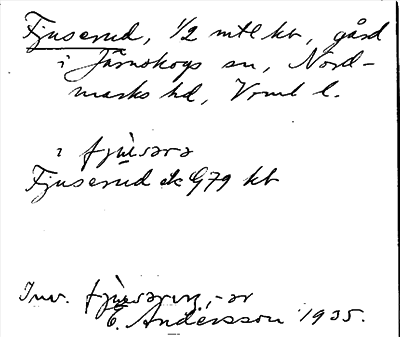 Fjuserud, 1/2 mtl kr, gård
i Järnskogs sn, Nord-
marks hd, Vrml l.
i fjùsərə
Fjuserud ek G79 kb
Inv. fjùsəring, -ar
E. Andersson 1935.